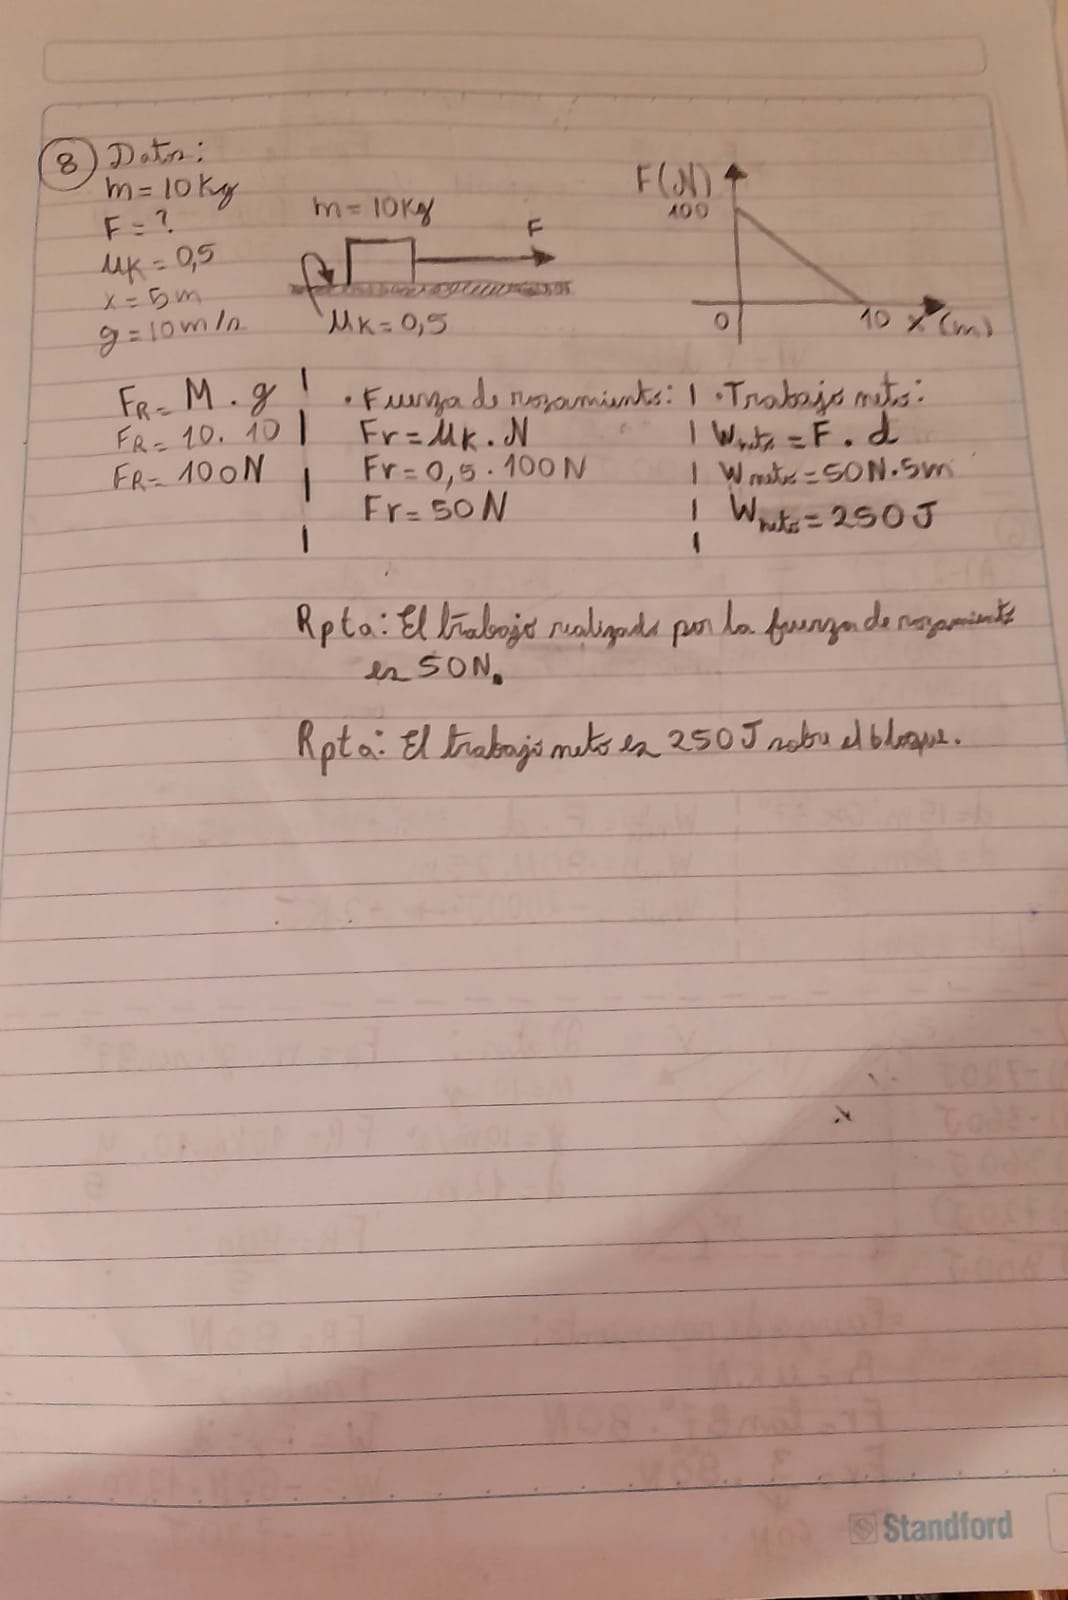 8 Datos:
m = 10Kg
F = ?
μK = 0,5
x = 5m
g = 10m/s
m = 10Kg
F
μK = 0,5
F(N)
100
0
10 x (m)
FR = M . g
FR = 10. 10
FR = 100N
• Fuerza de rozamiento:
Fr = μK . N
Fr = 0,5 . 100N
Fr = 50N
• Trabajo neto:
Wneto = F . d
Wneto = 50N . 5m
Wneto = 250J
Rpta: El trabajo realizado por la fuerza de rozamiento
es 50N.
Rpta: El trabajo neto es 250J sobre el bloque.
Standford